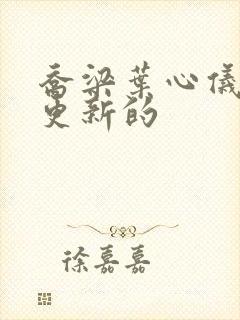 乔梁葉心儀
更新的
徐嘉嘉